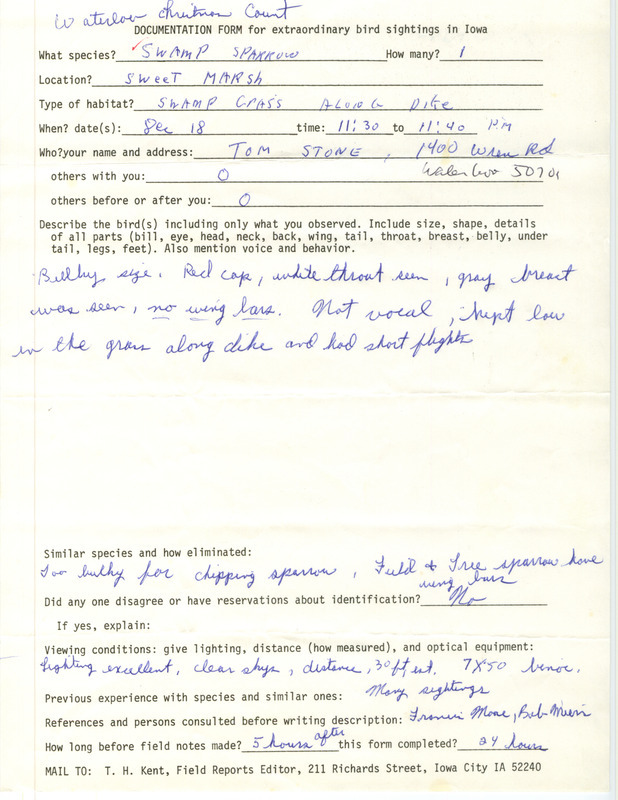 Waterloo Christmas Count
DOCUMENTATION FORM for extraordinary bird sightings in Iowa
What species? SWAMP SPARROW How many? 1
Location? SWEET MARSH
Type of habitat? SWAMP GRASS ALONG DIKE
When? date(s): Dec 18 time: 11:30 to 11:40 PM
Who?your name and address: TOM STONE, 1400 Wren Rd
others with you: 0 Waterloo 50701
others before or after you: 0
Describe the bird(s) including only what you observed. Include size, shape, details
of all parts (bill, eye, head, neck, back, wing, tail, throat, breast, belly, under
tail, legs, feet). Also mention voice and behavior.
Bulky size. Red cap, white throat seen, gray breast
was seen, no wing bars. Not vocal, kept low
in the grass along dike and had short flights
Similar species and how eliminated:
Too bulky for chipping sparrow, Field & Tree sparrow have
wing bars
Did any one disagree or have reservations about identification? No
If yes, explain:
Viewing conditions: give lighting, distance (how measured), and optical equipment:
lighting excellent, clear skys, distance, 30 ft est. 7X50 binoc.
Previous experience with species and similar ones: Many sightings
References and persons consulted before writing description: Francis Moore, Bob
How long before field notes made? 5 hours after this form completed? 24 hours
MAIL TO: T. H. Kent, Field Reports Editor, 211 Richards Street, Iowa City IA 52240